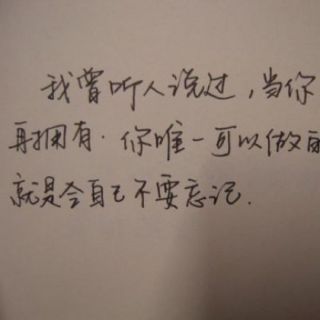 我曾听人说过，当你
再拥有．你唯一可以做的
就是令自己不要忘记．